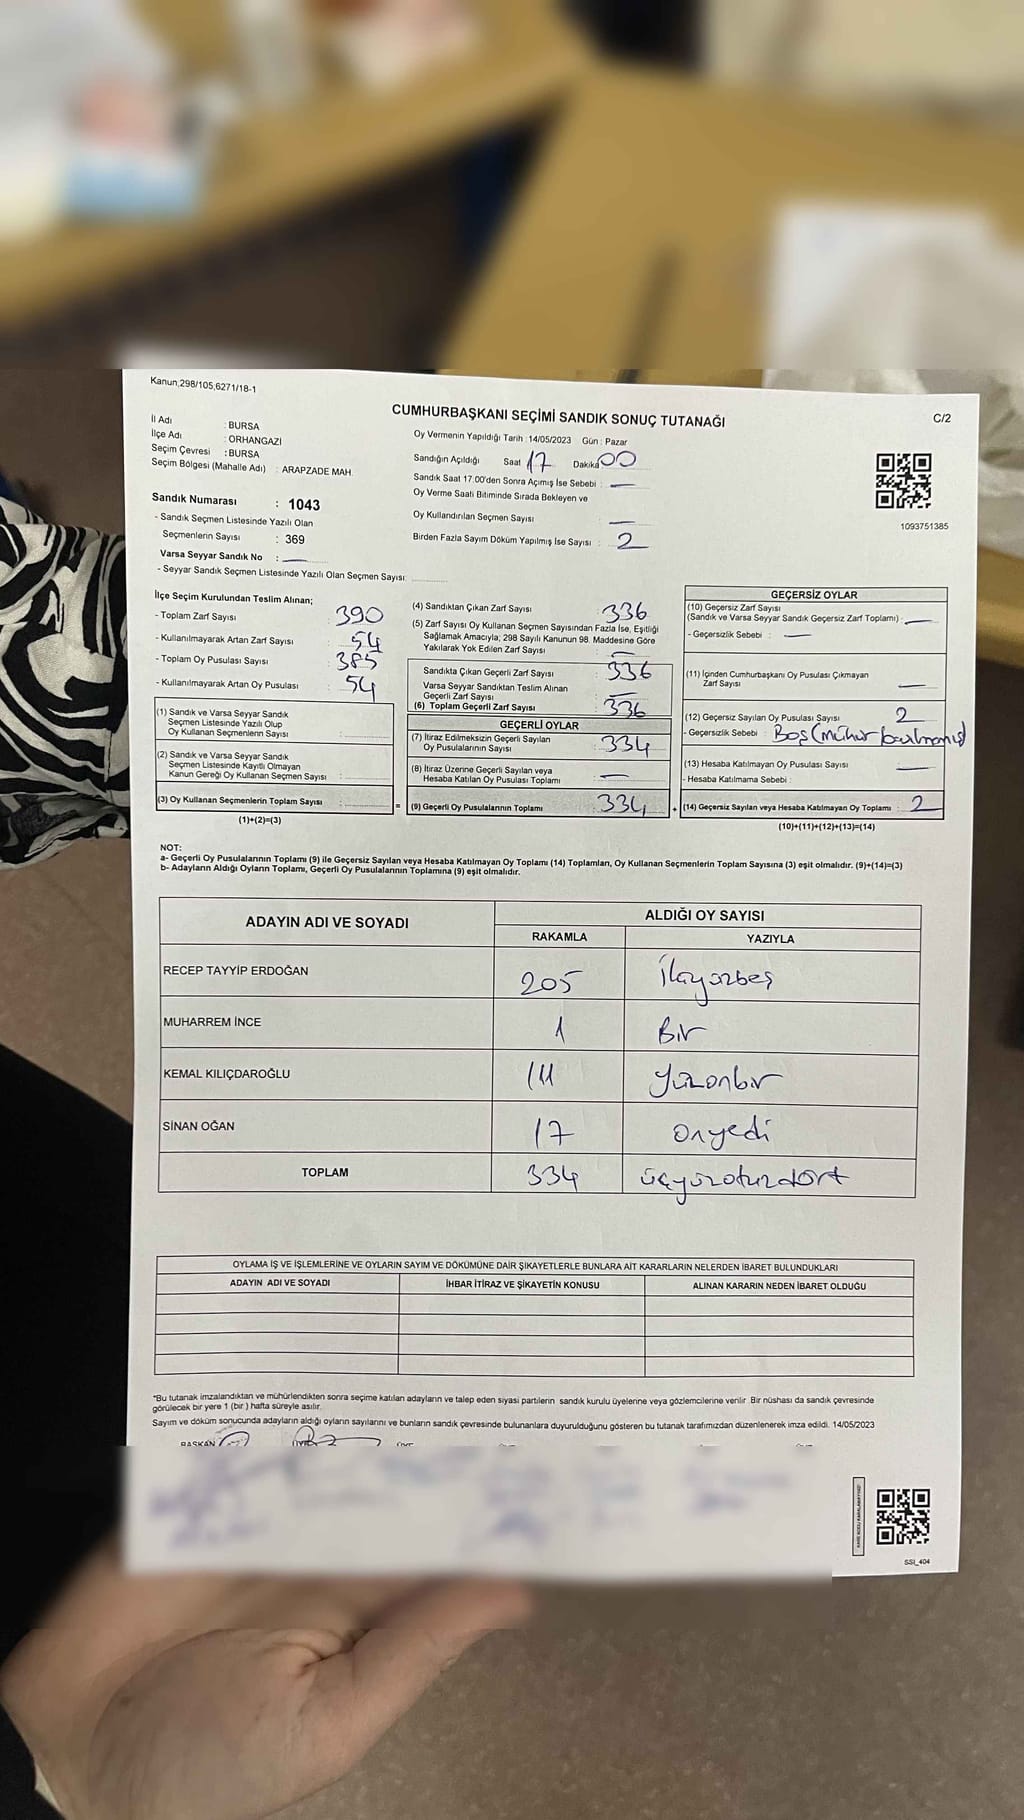 Kanun,298/105,6271/18-1
CUMHURBAŞKANI SEÇİMİ SANDIK SONUÇ TUTANAĞI
C/2
İl Adı : BURSA
İlçe Adı : ORHANGAZİ
Seçim Çevresi : BURSA
Seçim Bölgesi (Mahalle Adı) : ARAPZADE MAH.
Oy Vermenin Yapıldığı Tarih : 14/05/2023 Gün : Pazar
Sandığın Açıldığı Saat 17 Dakika 00
Sandık Saat 17.00'den Sonra Açımış İse Sebebi : —
Oy Verme Saati Bitiminde Sırada Bekleyen ve
Oy Kullandırılan Seçmen Sayısı —
Birden Fazla Sayım Döküm Yapılmış İse Sayısı : 2
1093751385
Sandık Numarası : 1043
- Sandık Seçmen Listesinde Yazılı Olan
Seçmenlerin Sayısı : 369
Varsa Seyyar Sandık No : —
- Seyyar Sandık Seçmen Listesinde Yazılı Olan Seçmen Sayısı:
İlçe Seçim Kurulundan Teslim Alınan;
- Toplam Zarf Sayısı : 390
- Kullanılmayarak Artan Zarf Sayısı : 54
- Toplam Oy Pusulası Sayısı : 385
- Kullanılmayarak Artan Oy Pusulası : 54
(1) Sandık ve Varsa Seyyar Sandık
Seçmen Listesinde Yazılı Olup
Oy Kullanan Seçmenlerin Sayısı :
(2) Sandık ve Varsa Seyyar Sandık
Seçmen Listesinde Kayıtlı Olmayan
Kanun Gereği Oy Kullanan Seçmen Sayısı :
(3) Oy Kullanan Seçmenlerin Toplam Sayısı : =
(1)+(2)=(3)
(4) Sandıktan Çıkan Zarf Sayısı : 336
(5) Zarf Sayısı Oy Kullanan Seçmen Sayısından Fazla İse, Eşitliği
Sağlamak Amacıyla; 298 Sayılı Kanunun 98. Maddesine Göre
Yakılarak Yok Edilen Zarf Sayısı : —
Sandıkta Çıkan Geçerli Zarf Sayısı : 336
Varsa Seyyar Sandıktan Teslim Alınan
Geçerli Zarf Sayısı : —
(6) Toplam Geçerli Zarf Sayısı : 336
GEÇERLİ OYLAR
(7) İtiraz Edilmeksizin Geçerli Sayılan
Oy Pusulalarının Sayısı : 334
(8) İtiraz Üzerine Geçerli Sayılan veya
Hesaba Katılan Oy Pusulası Toplamı : —
(9) Geçerli Oy Pusulalarının Toplamı : 334 +
GEÇERSİZ OYLAR
(10) Geçersiz Zarf Sayısı
(Sandık ve Varsa Seyyar Sandık Geçersiz Zarf Toplamı) : —
- Geçersizlik Sebebi : —
(11) İçinden Cumhurbaşkanı Oy Pusulası Çıkmayan
Zarf Sayısı : —
(12) Geçersiz Sayılan Oy Pusulası Sayısı : 2
- Geçersizlik Sebebi : Boş (mühür basılmamış)
(13) Hesaba Katılmayan Oy Pusulası Sayısı : —
- Hesaba Katılmama Sebebi :
(14) Geçersiz Sayılan veya Hesaba Katılmayan Oy Toplamı : 2
(10)+(11)+(12)+(13)=(14)
NOT:
a- Geçerli Oy Pusulalarının Toplamı (9) ile Geçersiz Sayılan veya Hesaba Katılmayan Oy Toplamı (14) Toplamları, Oy Kullanan Seçmenlerin Toplam Sayısına (3) eşit olmalıdır. (9)+(14)=(3)
b- Adayların Aldığı Oyların Toplamı, Geçerli Oy Pusulalarının Toplamına (9) eşit olmalıdır.
ADAYIN ADI VE SOYADI
ALDIĞI OY SAYISI
RAKAMLA YAZIYLA
RECEP TAYYİP ERDOĞAN 205 İkiyüzbeş
MUHARREM İNCE 1 Bir
KEMAL KILIÇDAROĞLU 111 Yüzonbir
SİNAN OĞAN 17 Onyedi
TOPLAM 334 üçyüzotuzdört
OYLAMA İŞ VE İŞLEMLERİNE VE OYLARIN SAYIM VE DÖKÜMÜNE DAİR ŞİKAYETLERLE BUNLARA AİT KARARLARIN NELERDEN İBARET BULUNDUKLARI
ADAYIN ADI VE SOYADI İHBAR İTİRAZ VE ŞİKAYETİN KONUSU ALINAN KARARIN NEDEN İBARET OLDUĞU
*Bu tutanak imzalandıktan ve mühürlendikten sonra seçime katılan adayların ve talep eden siyasi partilerin sandık kurulu üyelerine veya gözlemcilerine verilir. Bir nüshası da sandık çevresinde
görülecek bir yere 1 (bir ) hafta süreyle asılır.
Sayım ve döküm sonucunda adayların aldığı oyların sayılarını ve bunların sandık çevresinde bulunanlara duyurulduğunu gösteren bu tutanak tarafımızdan düzenlenerek imza edildi. 14/05/2023
BAŞKAN
SSI_404